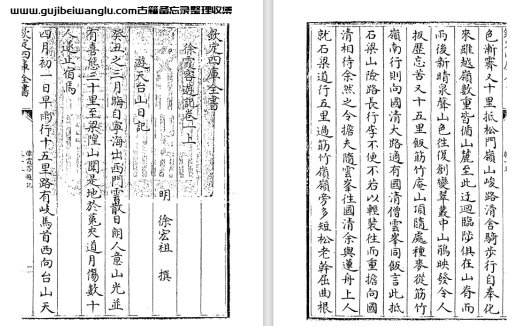 www.gujibeiwanglu.com古籍备忘录整理收集
欽定四庫全書
徐霞客遊記卷一上
明 徐宏祖 撰
遊天台山日記
癸丑之三月晦自寧海出西門雲散日朗人意山光並
有喜態三十里至梁隍山聞是地於菟夾道月傷數十
人遂止宿焉
四月初一日早雨行十五里路有岐馬首西向台山天
欽定四庫全書
徐霞客遊記
色漸霽又十里抵松門嶺山峻路滑舍騎步行自奉化
來雖越嶺數重皆循山麓至此迂迴臨陟俱在山脊而
雨後新晴泉聲山色往復創變翠叢中山鵑映發令人
扳歷忘苦又十五里飯筋竹庵山頂隨處種麥從筋竹
嶺南行則向國清大路適有國清僧雲峯同飯言此抵
石梁山險路長行李不便不若以輕裝往而重擔向國
清相待余然之令擔夫隨雲峯往國清余與蓮舟上人
就石梁道行五里過筋竹嶺嶺旁多短松老幹屈曲根